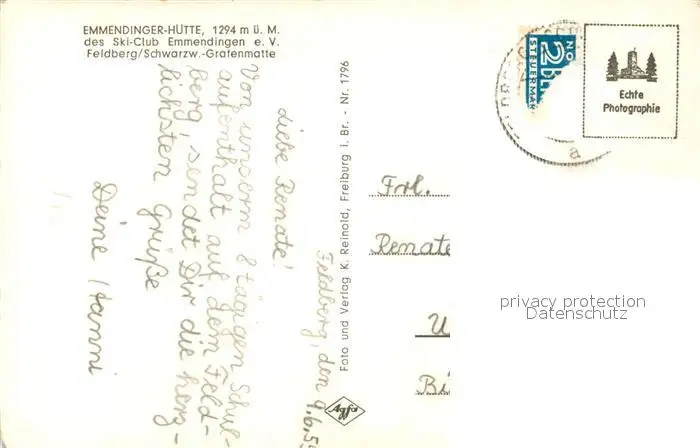 EMMENDINGER-HÜTTE, 1294 m ü. M.
des Ski-Club Emmendingen e. V.
Feldberg/Schwarzw.-Grafenmatte
Feldberg, den 9.6.5
Liebe Renate!
Von unserm 8 tägigen Schul-
aufenthalt auf dem Feld-
berg, sendet Dir die herz-
lichsten Grüße
Deine Hanni
Foto und Verlag K. Reinold, Freiburg i. Br. - Nr. 1796
Agfa
No
2
STEUERMAR
Echte
Photographie
a
Frl.
Renate
U
Bi
privacy protection
Datenschutz